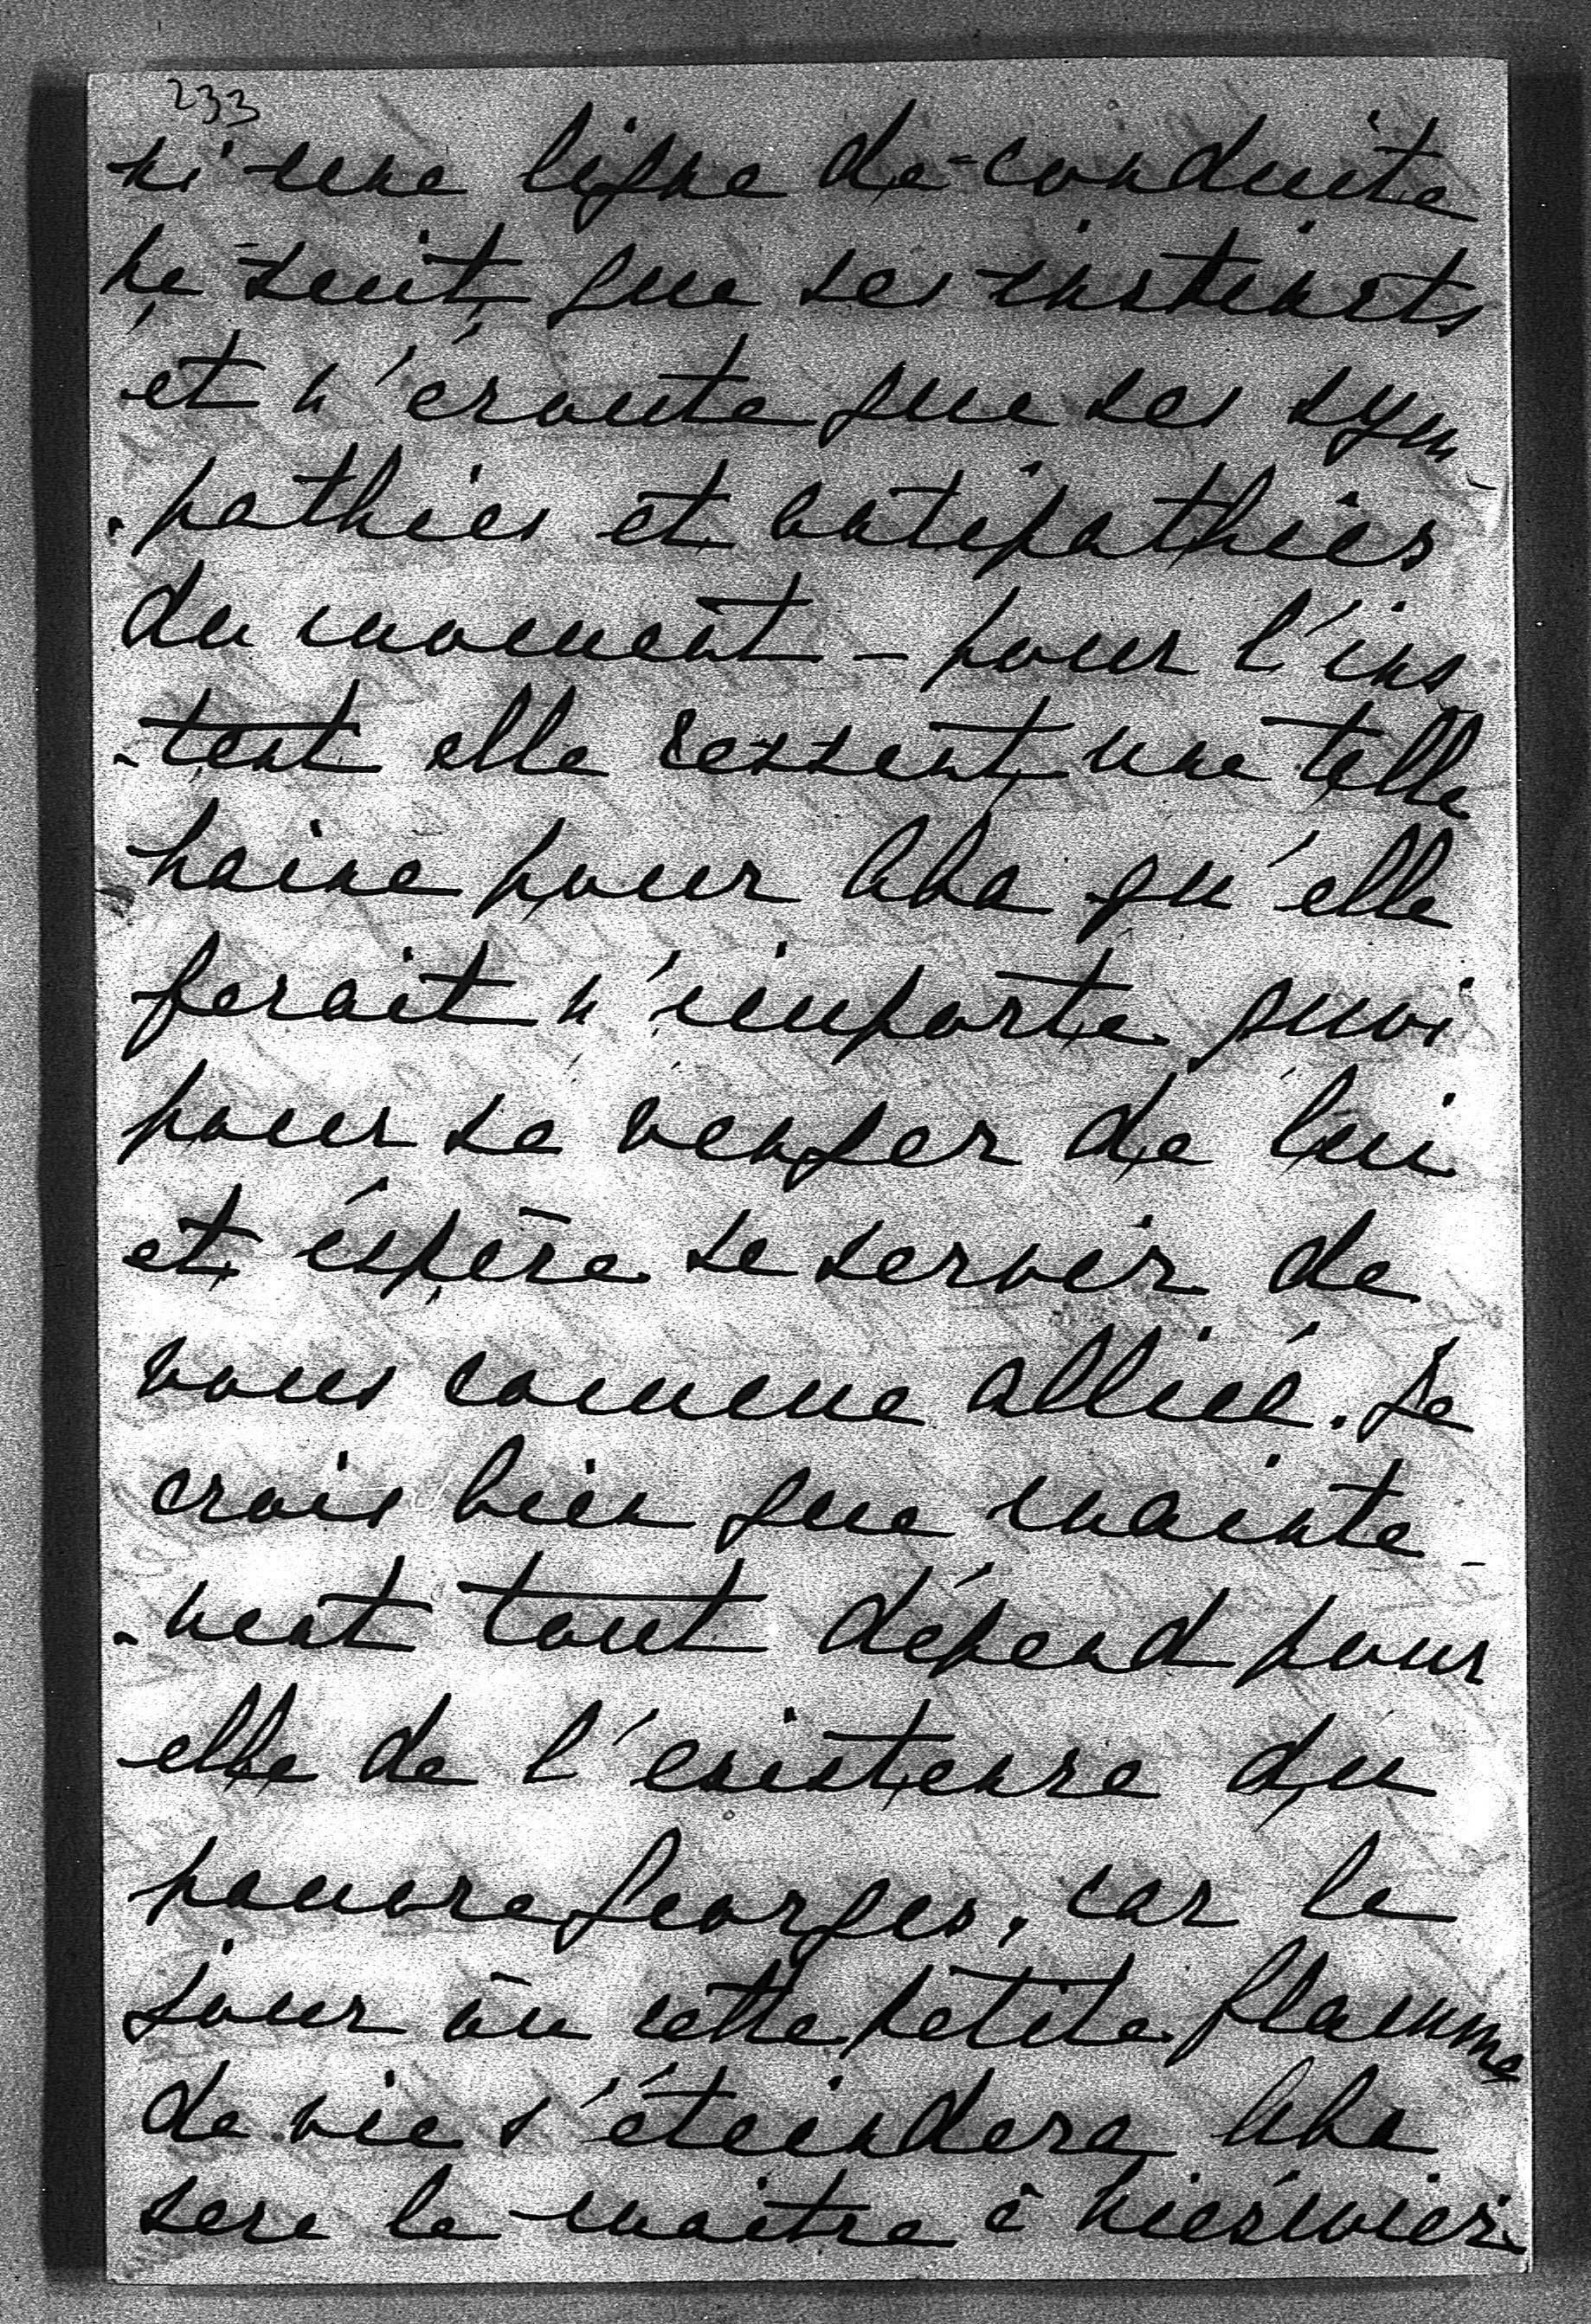 233
ni une ligne de conduite
ne suit que ses instincts
et n'écoute que ses sym
-pathies et antipathies
du moment – pour l'ins
-tant elle ressent une telle
haine pour Aba qu'elle
ferait n'importe quoi
pour se venger de lui
et éspère se servir de
vous comme alliée. Je
crois bien que mainte-
-nant tout dépend pour
elle de l'existence du
pauvre Georges, car le
jour où cette petite flamme
de vie s'éteindera Aba
sera le maître à Niéswież